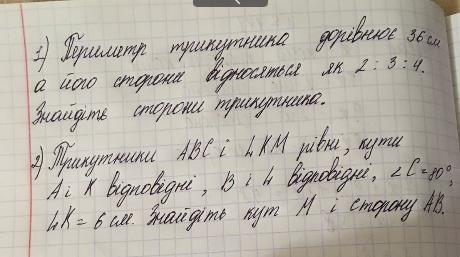 1) Периметр трикутника дорівнює 36 см
а його сторони відносяться як 2 : 3 : 4.
Знайдіть сторони трикутника.
2) Трикутники ABC і LKM рівні, кути
A і K відповідні, B і L відповідні, ∠C = 80°,
LK = 6 см. Знайдіть кут M і сторону AB.